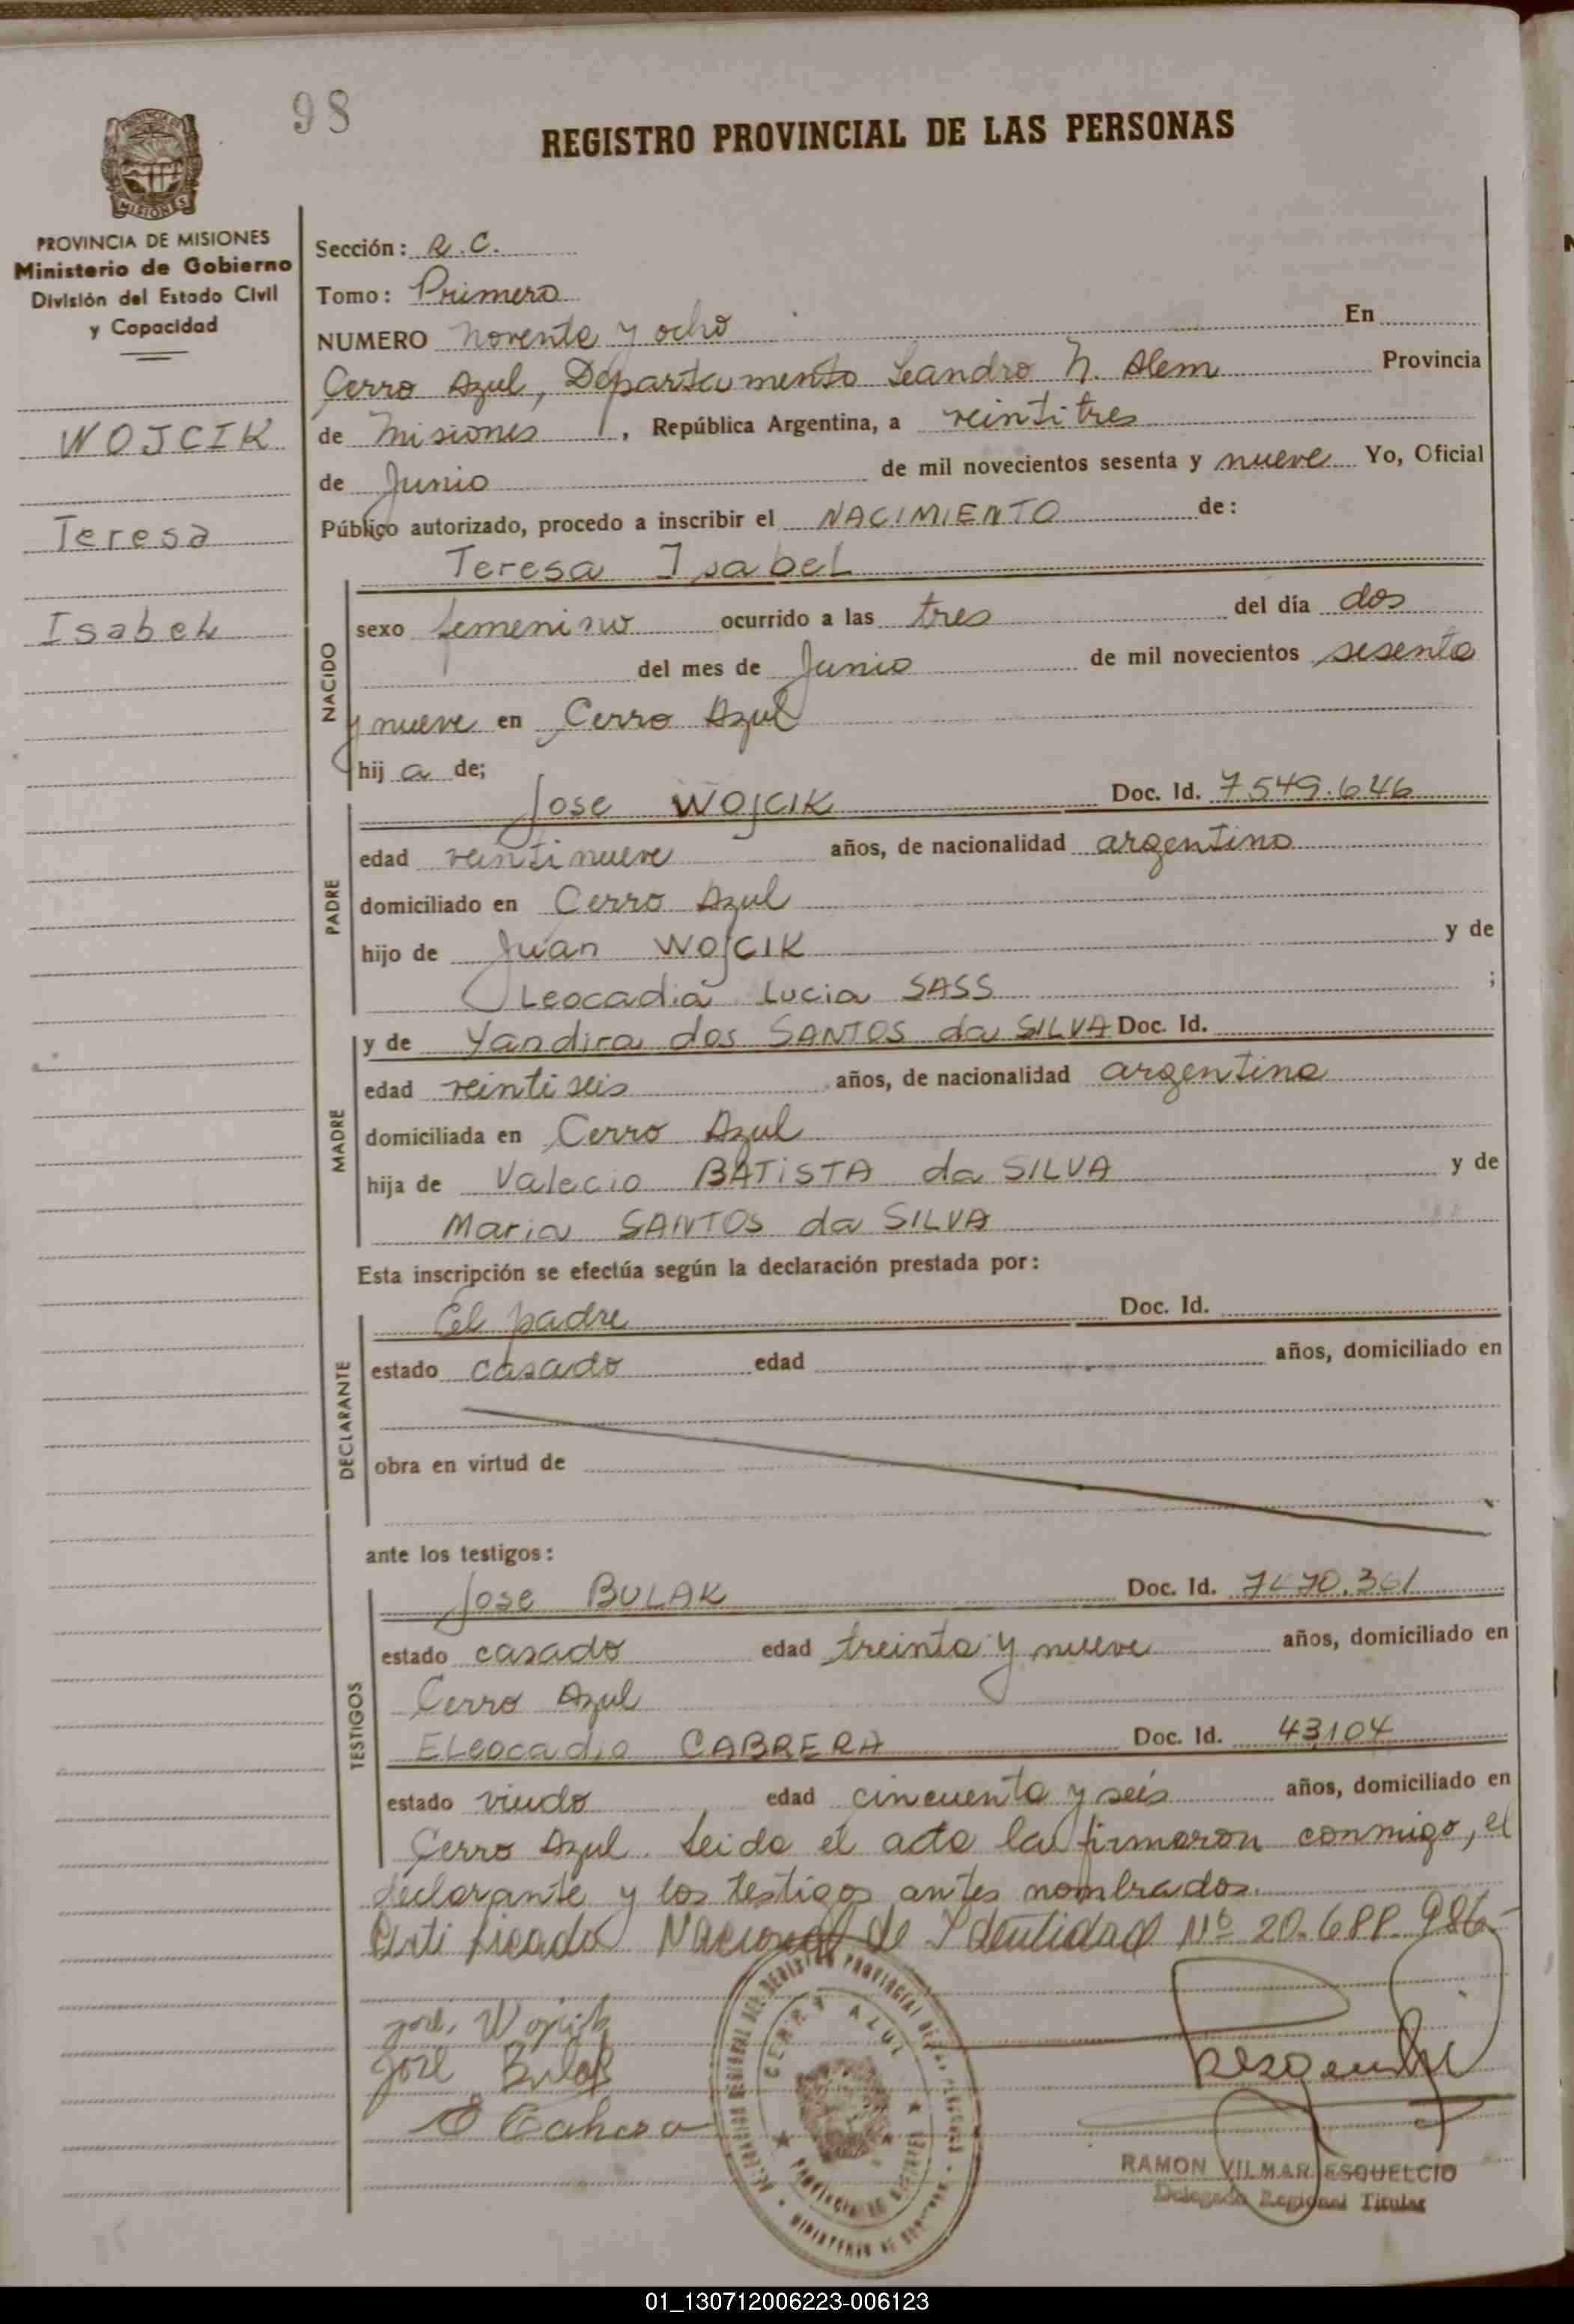 98
REGISTRO PROVINCIAL DE LAS PERSONAS
MISIONES
PROVINCIA DE MISIONES
Ministerio de Gobierno
División del Estado Civil
y Capacidad
WOJCIK
Teresa
Isabel
Sección: R.C.
Tomo: Primero
NUMERO noventa y ocho En
Cerro Azul, Departamento Leandro N. Alem Provincia
de Misiones, República Argentina, a veintitres
de Junio de mil novecientos sesenta y nueve Yo, Oficial
Público autorizado, procedo a inscribir el NACIMIENTO de:
Teresa Isabel
NACIDO
sexo femenino ocurrido a las tres del día dos
del mes de Junio de mil novecientos sesenta
y nueve en Cerro Azul
hija de;
PADRE
Jose WOJCIK Doc. Id. 7549.646
edad veintinueve años, de nacionalidad argentino
domiciliado en Cerro Azul
hijo de Juan WOJCIK y de
Leocadia Lucia SASS ;
MADRE
y de Yandira dos SANTOS da SILVA Doc. Id.
edad veintiseis años, de nacionalidad argentina
domiciliada en Cerro Azul
hija de Valecio BATISTA da SILVA y de
Maria SANTOS da SILVA
Esta inscripción se efectúa según la declaración prestada por:
DECLARANTE
El padre Doc. Id.
estado casado edad años, domiciliado en
obra en virtud de
ante los testigos:
TESTIGOS
Jose BULAK Doc. Id. 7470.361
estado casado edad treinta y nueve años, domiciliado en
Cerro Azul
Eleocadio CABRERA Doc. Id. 43104
estado viudo edad cincuenta y seis años, domiciliado en
Cerro Azul. Leida el acta la firmaron conmigo, el
declarante y los testigos antes nombrados.
Certificado Nacional de Identidad Nº 20.688.986.-
José Wojcik
José Bulak
CERRO AZUL
PROVINCIA DE MISIONES
RAMON VILMAR ESQUELCIO
Delegado Regional Titular
01_130712006223-006123